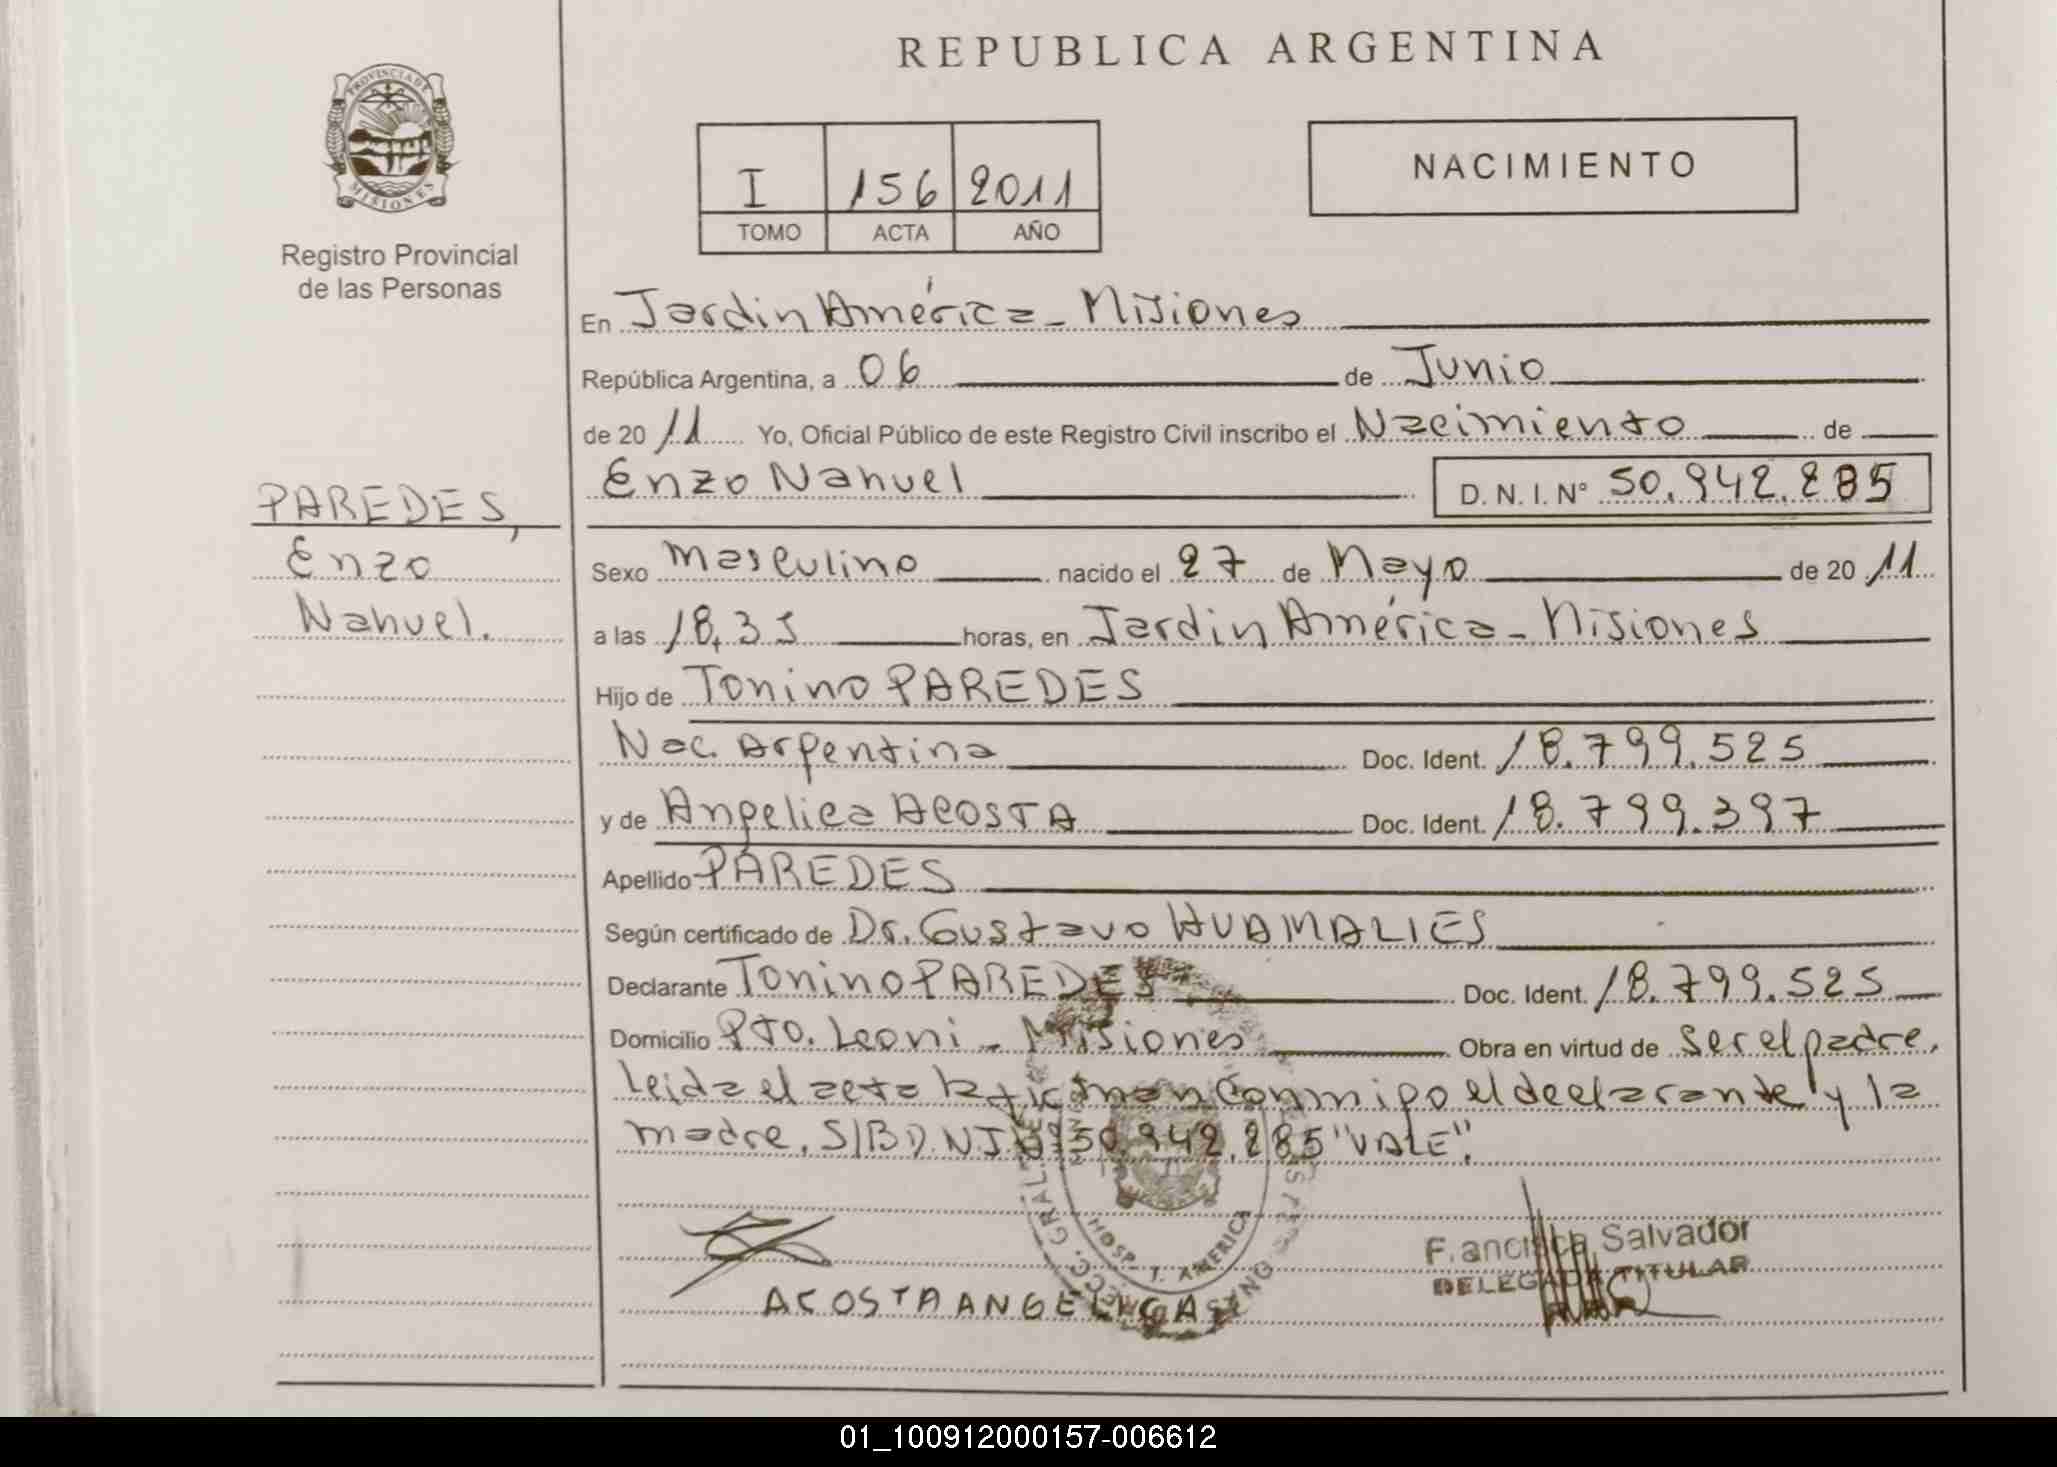 REPUBLICA ARGENTINA
PROVINCIA DE
MISIONES
Registro Provincial
de las Personas
I 156 2011
TOMO ACTA AÑO
NACIMIENTO
En Jardin América - Misiones
República Argentina, a 06 de Junio
de 20 11 Yo, Oficial Público de este Registro Civil inscribo el Nacimiento de
Enzo Nahuel D. N. I. N° 50.942.285
PAREDES,
Enzo
Nahuel.
Sexo masculino nacido el 27 de Mayo de 20 11
a las 18,35 horas, en Jardin América - Misiones
Hijo de Tonino PAREDES
Nac. Argentina Doc. Ident. 18.799.525
y de Angelica ACOSTA Doc. Ident. 18.799.397
Apellido PAREDES
Según certificado de Dr. Gustavo HUAMALIES
Declarante Tonino PAREDES Doc. Ident. 18.799.525
Domicilio Pto. Leoni - Misiones Obra en virtud de ser el padre.
Leida el acta la firman conmigo el declarante y la
madre. S/B D.N.I. N° 50.942.285 "VALE".
HOSP. J. AMERICA
ACOSTA ANGELICA
Francisca Salvador
DELEGADA TITULAR
01_100912000157-006612